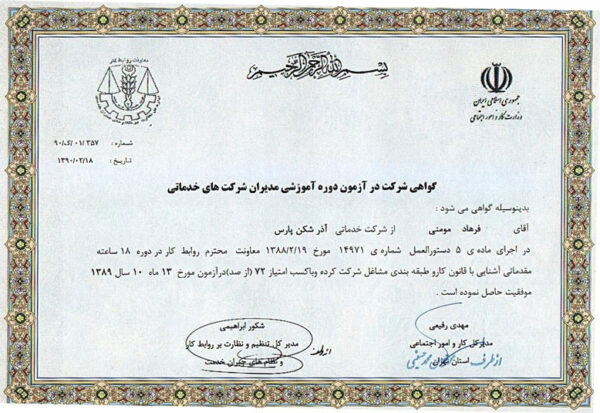 بسم الله الرحمن الرحیم
معاونت روابط کار
جمهوری اسلامی ایران
وزارت کار و امور اجتماعی
شماره : ۹۰/ک/۰۱/۳۵۷
تاریخ : ۱۳۹۰/۰۲/۱۸
گواهی شرکت در آزمون دوره آموزشی مدیران شرکت های خدماتی
بدینوسیله گواهی می شود :
آقای فرهاد مومنی از شرکت خدماتی آذر شکن پارس
در اجرای ماده ی ۵ دستورالعمل شماره ی ۱۴۹۷۱ مورخ ۱۳۸۸/۲/۱۹ معاونت محترم روابط کار در دوره ۱۸ ساعته
مقدماتی آشنایی با قانون کار و طبقه بندی مشاغل شرکت کرده وباکسب امتیاز ۷۲ (از صد)درآزمون مورخ ۱۳ ماه ۱۰ سال ۱۳۸۹
موفقیت حاصل نموده است .
مهدی رفیعی
مدیرکل کار و امور اجتماعی
استان تهران
از طرف
شکور ابراهیمی
مدیر کل تنظیم و نظارت بر روابط کار
و نظام های جبران خدمت